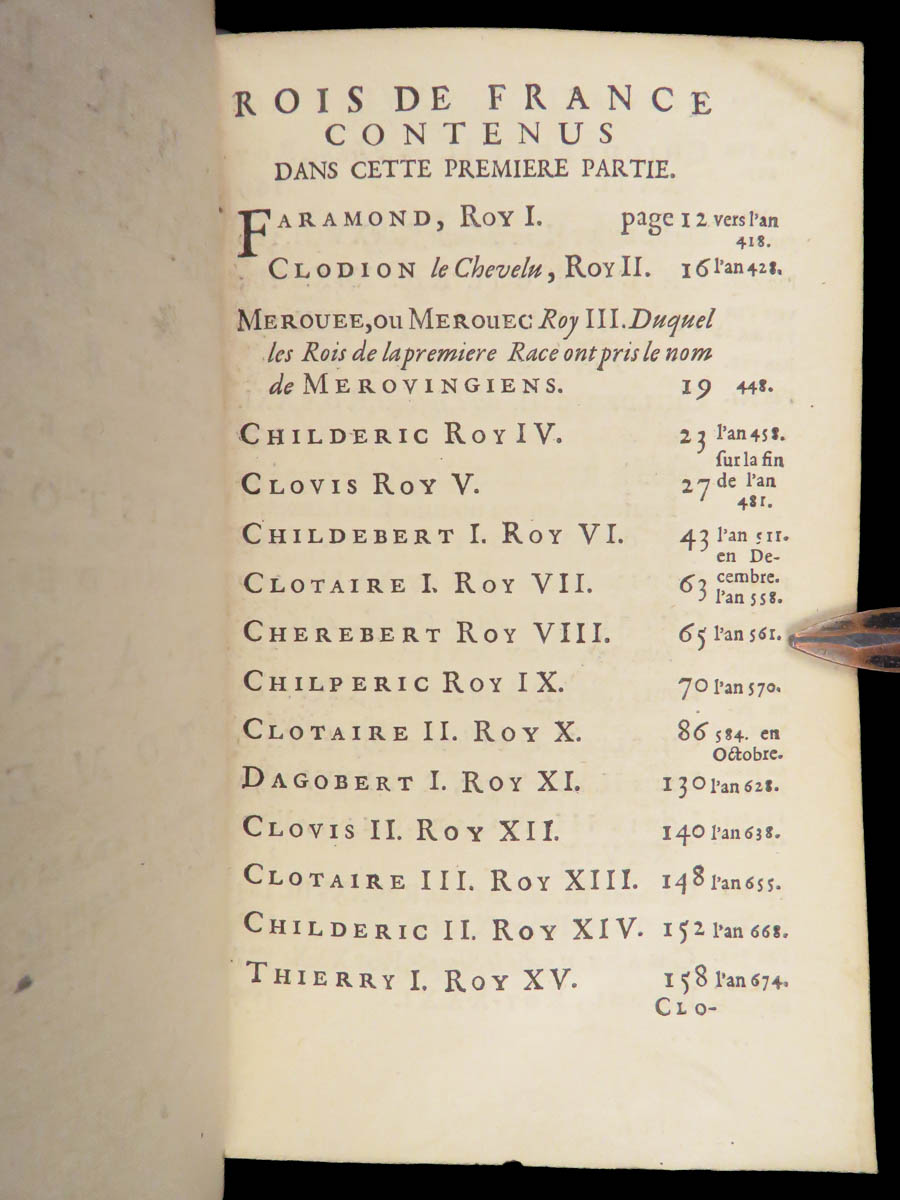 ROIS DE FRANCE
CONTENUS
DANS CETTE PREMIERE PARTIE.
FARAMOND, ROY I. page 12 vers l'an
418.
CLODION le Chevelu, ROY II. 16 l'an 428.
MEROUEE, ou MEROUEC Roy III. Duquel
les Rois de la premiere Race ont pris le nom
de MEROVINGIENS. 19 448.
CHILDERIC ROY IV. 23 l'an 458.
CLOVIS ROY V. 27 ſur la fin
de l'an
481.
CHILDEBERT I. ROY VI. 43 l'an 511.
en De-
cembre.
CLOTAIRE I. ROY VII. 63 l'an 558.
CHEREBERT ROY VIII. 65 l'an 561.
CHILPERIC ROY IX. 70 l'an 570.
CLOTAIRE II. ROY X. 86 584. en
Octobre.
DAGOBERT I. ROY XI. 130 l'an 628.
CLOVIS II. ROY XII. 140 l'an 638.
CLOTAIRE III. ROY XIII. 148 l'an 655.
CHILDERIC II. ROY XIV. 152 l'an 668.
THIERRY I. ROY XV. 158 l'an 674.
CLO-